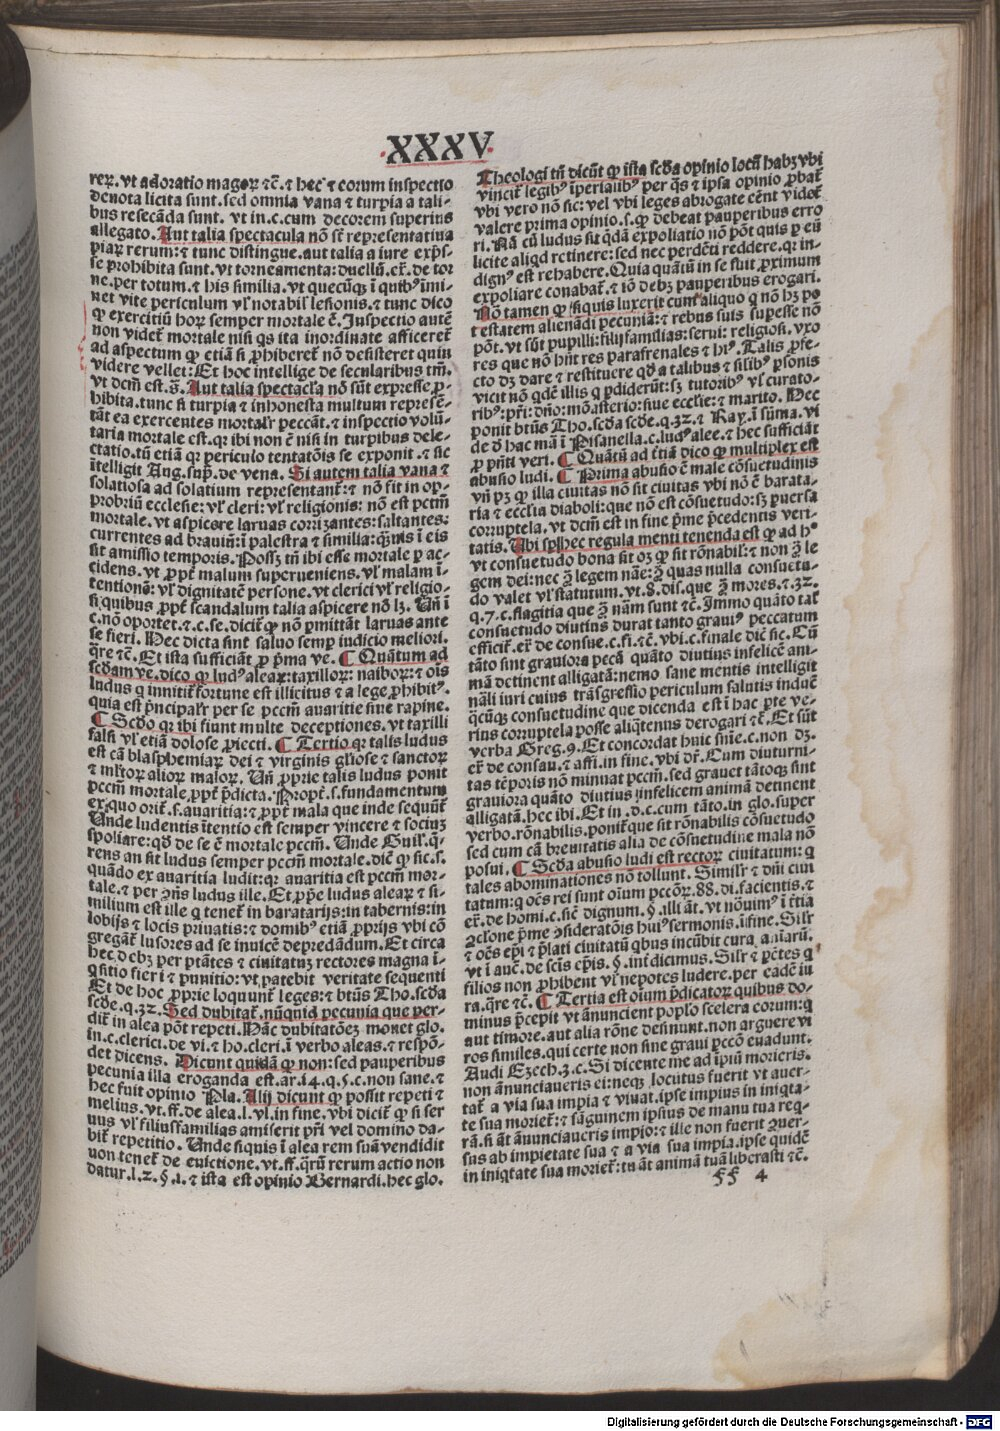 XXXV
rerꝝ. vt adoratio magoꝝ ⁊c̃. ⁊ hec ⁊ eorum inspectio
deuota licita sunt. sed omnia vana ⁊ turpia a tali-
bus resecãda sunt. vt in .c. cum decorem superius
allegato. Aut talia spectacula nõ sũt representatiua
piaꝝ rerum: ⁊ tunc distingue. aut talia a iure exp̃s-
se prohibita sunt. vt torneamenta: duellũ. ex̃. de tor
ne. per totum. ⁊ his similia. vt quecũqꝫ ĩ quibꝰ ĩmi-
net vite periculum vl̃ notabil̃ lesionis. ⁊ tunc dico
ꝙ exercitiũ hoꝝ semper mortale ẽ. Inspectio autẽ
non videt̃ mortale nisi qs ita inordinate afficeret̃
ad aspectum ꝙ etiã si ꝓhiberet̃ nõ desisteret quin
videre vellet: Et hoc intellige de secularibus tm̃.
vt dcm̃ est .s̃. Aut talia spectacl̃a nõ sũt expresse ꝓ-
hibita. tunc si turpia ⁊ inhonesta multum represẽ-
tãt ea exercentes mortalr̃ peccãt. ⁊ inspectio volũ-
taria mortale est. qꝛ ibi non ẽ nisi in turpibus dele-
ctatio. tũ etiã qꝛ periculo tentatõis se exponit. ⁊ sic
ĩtelligit Ang. sup̃. de vena. Si autem talia vana ⁊
solatiosa ad solatium representant̃: ⁊ nõ fit in op-
probriũ ecclesie: vl̃ cleri: vl̃ religionis: nõ est pctm̃
mortale. vt aspicere laruas corrizantes: saltantes:
currentes ad brauiũ: ĩ palestra ⁊ similia: q̃uis ĩ eis
sit amissio temporis. Possꝫ tñ ibi esse mortale ꝑ ac-
cidens. vt ꝓpt̃ malum superueniens. vl̃ malam ĩ-
tentionẽ: vl̃ dignitatẽ persone. vt clerici vl̃ religio-
si quibus ꝓpt̃ scandalum talia aspicere nõ lꝫ. Uñ ĩ
c. nõ oportet. ⁊ .c. se. dicit̃ ꝙ nõ pmittãt laruas ante
se fieri. Hec dicta sint saluo semꝑ iudicio meliori.
q̃re ⁊c̃. Et ista sufficiãt ꝓ p̃ma ve. ¶ Quãtum ad
scd̃am ve. dico ꝙ ludꝰ aleaꝝ: taxilloꝝ: naiboꝝ: ⁊ oĩs
ludus q̃ innitit̃ fortune est illicitus ⁊ a lege ꝓhibitꝰ.
quia est p̃ncipalr̃ per se pccm̃ auaritie siue rapine.
¶ Scd̃o qꝛ ibi fiunt multe deceptiones. vt taxilli
falsi vl̃ etiã dolose ꝓiecti. ¶ Tertio qꝛ talis ludus
est cã blasphemiaꝝ dei ⁊ virginis gl̃iose ⁊ sanctoꝝ
⁊ ml̃toꝝ alioꝝ maloꝝ. Uñ ꝓprie talis ludus ponit
pccm̃ mortale ꝓpt̃ p̃dicta. Propt̃ .s. fundamentum
ex quo orit̃ .s. auaritia: ⁊ ꝓpt̃ mala que inde sequũt̃
Unde ludentis ĩtentio est semper vincere ⁊ sociuꝫ
spoliare: qd̃ de se ẽ mortale pccm̃. Unde Guil. q̃-
rens an sit ludus semper pccm̃ mortale. dic̃ ꝙ sic .s.
quãdo ex auaritia ludit: qꝛ auaritia est pccm̃ mor-
tale. ⁊ per ꝯñs ludus ille. Et ꝓp̃e ludus aleaꝝ ⁊ si-
milium est ille q̃ tenet̃ in baratarijs: in tabernis: in
lobijs ⁊ locis priuatis: ⁊ domibꝰ etiã ꝓprijs vbi cõ
gregãt̃ lusores ad se inuicẽ depredãdum. Et circa
hec debꝫ per ptãtes ⁊ ciuitatuꝫ rectores magna ĩ-
q̃sitio fieri ⁊ punitio: vt patebit veritate sequenti
Et de hoc ꝓprie loquunt̃ leges: ⁊ btũs Tho. scd̃a
scd̃e. q. 32. Sed dubitat̃. nũquid pecunia que per-
dit̃ in alea põt repeti. Hãc dubitatõeꝫ mouet glo.
in .c. clerici. de vi. ⁊ ho. cleri. ĩ verbo aleas. ⁊ respõ-
det dicens. Dicunt quidã ꝙ non: sed pauperibus
pecunia illa eroganda est. ar. 14. q. 5. c. non sane. ⁊
hec fuit opinio Pla. Alij dicunt ꝙ possit repeti ⁊
melius. vt. ff. de alea. l. vl. in fine. vbi dicit̃ ꝙ si ser
uus vl̃ filiusfamilias amiserit pr̃i vel domino da-
bit̃ repetitio. Unde siquis ĩ alea rem suã vendidit
non tenet̃ de euictione. vt. ff. q̃rũ rerum actio non
datur. l. 2. §. 1. ⁊ ista est opinio Bernardi. hec glo.
Theologi tñ dicũt ꝙ ista scd̃a opinio locũ habꝫ vbi
vincit̃ legibꝰ ĩperialibꝰ per q̃s ⁊ ipsa opinio ꝓbat̃
vbi vero nõ sic: vel vbi leges abrogate cẽnt videt̃
valere prima opinio .s. ꝙ debeat pauperibus erro
ri. Nã cũ ludus sit q̃dã expoliatio nõ põt quis ꝑ eũ
licite aliqd̃ retinere: sed nec perdẽti reddere. qꝛ in
dignꝰ est rehabere. Quia quãtũ in se fuit ꝓximum
expoliare conabat̃. ⁊ iõ debꝫ pauperibus erogari.
Nõ tamen ꝙ siquis luxerit cum aliquo q̃ nõ hꝫ po
testatem alienãdi pecuniã: ⁊ rebus suis superesse nõ
põt. vt sũt pupilli: filijfamilias: serui: religiosi. vxo
res que nõ hñt res parafrenales ⁊ hiꝰ. Talis ꝓfe-
cto dꝫ dare ⁊ restituere qd̃ a talibus ⁊ silibꝰ ꝑsonis
vicit nõ qdẽ illis q̃ ꝑdiderũt: sꝫ tutoribꝰ vl̃ curato-
ribꝰ: pr̃i: dño: mõasterio: siue eccl̃ie: ⁊ marito. Hec
ponit btũs Tho. scd̃a scd̃e. q. 32. ⁊ Ray. ĩ sũma. vi
de d̃ hac mã ĩ Pisanella. c. ludꝰ alee. ⁊ hec sufficiãt
ꝓ p̃ñti veri. ¶ Quãtũ ad t̃tiã dico ꝙ multiplex est
abusio ludi. ¶ Prima abusio ẽ male cõsuetudinis
vñ pꝫ ꝙ illa ciuitas nõ sit ciuitas vbi nõ ẽ barata-
ria ⁊ eccl̃ia diaboli: que nõ est cõsuetudo: sꝫ ꝑuersa
corruptela. vt dcm̃ est in fine p̃me p̃cedentis veri-
tatis. Ubi sp̃lhec regula menti tenenda est ꝙ ad hͦ
vt consuetudo bona sit oꝫ ꝙ sit rõnabil̃: ⁊ non ꝯ̃ le
gem dei: nec ꝯ̃ legem nãe: ꝯ̃ quas nulla consuetu-
do valet vl̃ statutum. vt. 8. dis. que ꝯ̃ mores. ⁊ 32.
q. 7. c. flagitia que ꝯ̃ nãm sunt ⁊c̃. Immo quãto tal̃
consuetudo diutius durat tanto grauiꝰ peccatum
efficit̃. ex̃ de consue. c. fi. ⁊c̃. vbi. c. finale dic̃ sic. Cũ
tãto sint grauiora pecã quãto diutius infelicẽ ani-
mã detinent alligatã: nemo sane mentis intelligit
nãli iuri cuius trãsgressio periculum salutis inducẽ
q̃cũqꝫ consuetudine que dicenda est ĩ hac pte ve-
rius corruptela posse aliq̃tenus derogari ⁊c̃. Et sũt
verba Greg. 9. Et concordat huic snĩe. c. non dꝫ.
ex̃ de consau. ⁊ affi. in fine. vbi dr̃. Cum diuturni-
tas tẽporis nõ minuat pccm̃. sed grauet tãtoqꝫ sint
grauiora quãto diutius infelicem animã detinent
alligatã. hec ibi. Et in .d. c. cum tãto. in glo. super
verbo. rõnabilis. ponit̃ que sit rõnabilis cõsuetudo
sed cum cã breuitatis alia de cõsuetudine mala nõ
posui. ¶ Scd̃a abusio ludi est rectoꝝ ciuitatum: q̃
tales abominationes nõ tollunt. Similr̃ ⁊ dñi ciui
tatum: q̃ oẽs rei sunt oĩum pccõꝝ. 88. di. facientis. ⁊
ex̃. de homi. c. sic̃ dignum. §. illi ãt. vt nõuimꝰ ĩ t̃tia
ꝯclone p̃me ꝯsideratõis huiꝰ sermonis. ĩ fine. Silr̃
⁊ oẽs ep̃i ⁊ p̃lati ciuitatũ q̃bus incũbit cura aĩarũ.
vt ĩ auc̃. de scĩs ep̃is. §. int̃dicimus. Silr̃ ⁊ pr̃tes q̃
filios non ꝓhibent vl̃ nepotes ludere. per eãdẽ iu
ra. q̃re ⁊c̃. ¶ Tertia est oĩum p̃dicatoꝝ quibus do-
minus p̃cepit vt ãnuncient popl̃o scelera eorum: q̃
aut timore. aut alia rõne desinunt. non arguere vi
ros similes. qui certe non sine graui pccõ euadunt.
Audi Ezech. 3. c. Si dicente me ad ipiũ morieris.
non ãnunciaueris ei: neqꝫ locutus fuerit vt auer-
tat̃ a via sua impia ⁊ viuat. ipse impius in iniqta-
te sua moriet̃: ⁊ sãguinem ipsius de manu tua req̃-
rã. si ãt ãnunciaueris impio: ⁊ ille non fuerit ꝯuer-
sus ab impietate sua ⁊ a via sua impia. ipse quidẽ
in iniqtate sua moriet̃: tu ãt animã tuã liberasti ⁊c̃.
ff 4
Digitalisierung gefördert durch die Deutsche Forschungsgemeinschaft - DFG